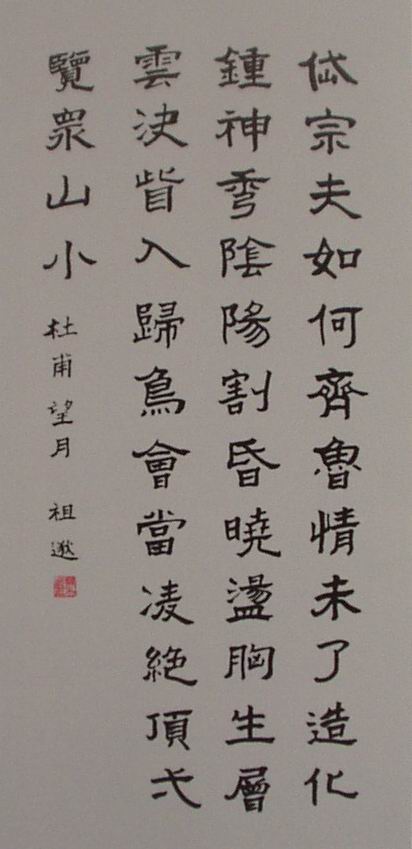 岱宗夫如何齊魯情未了造化
鍾神秀陰陽割昏曉盪胸生層
雲決眥入歸鳥會當凌絕頂弌
覽眾山小 杜甫望月 祖